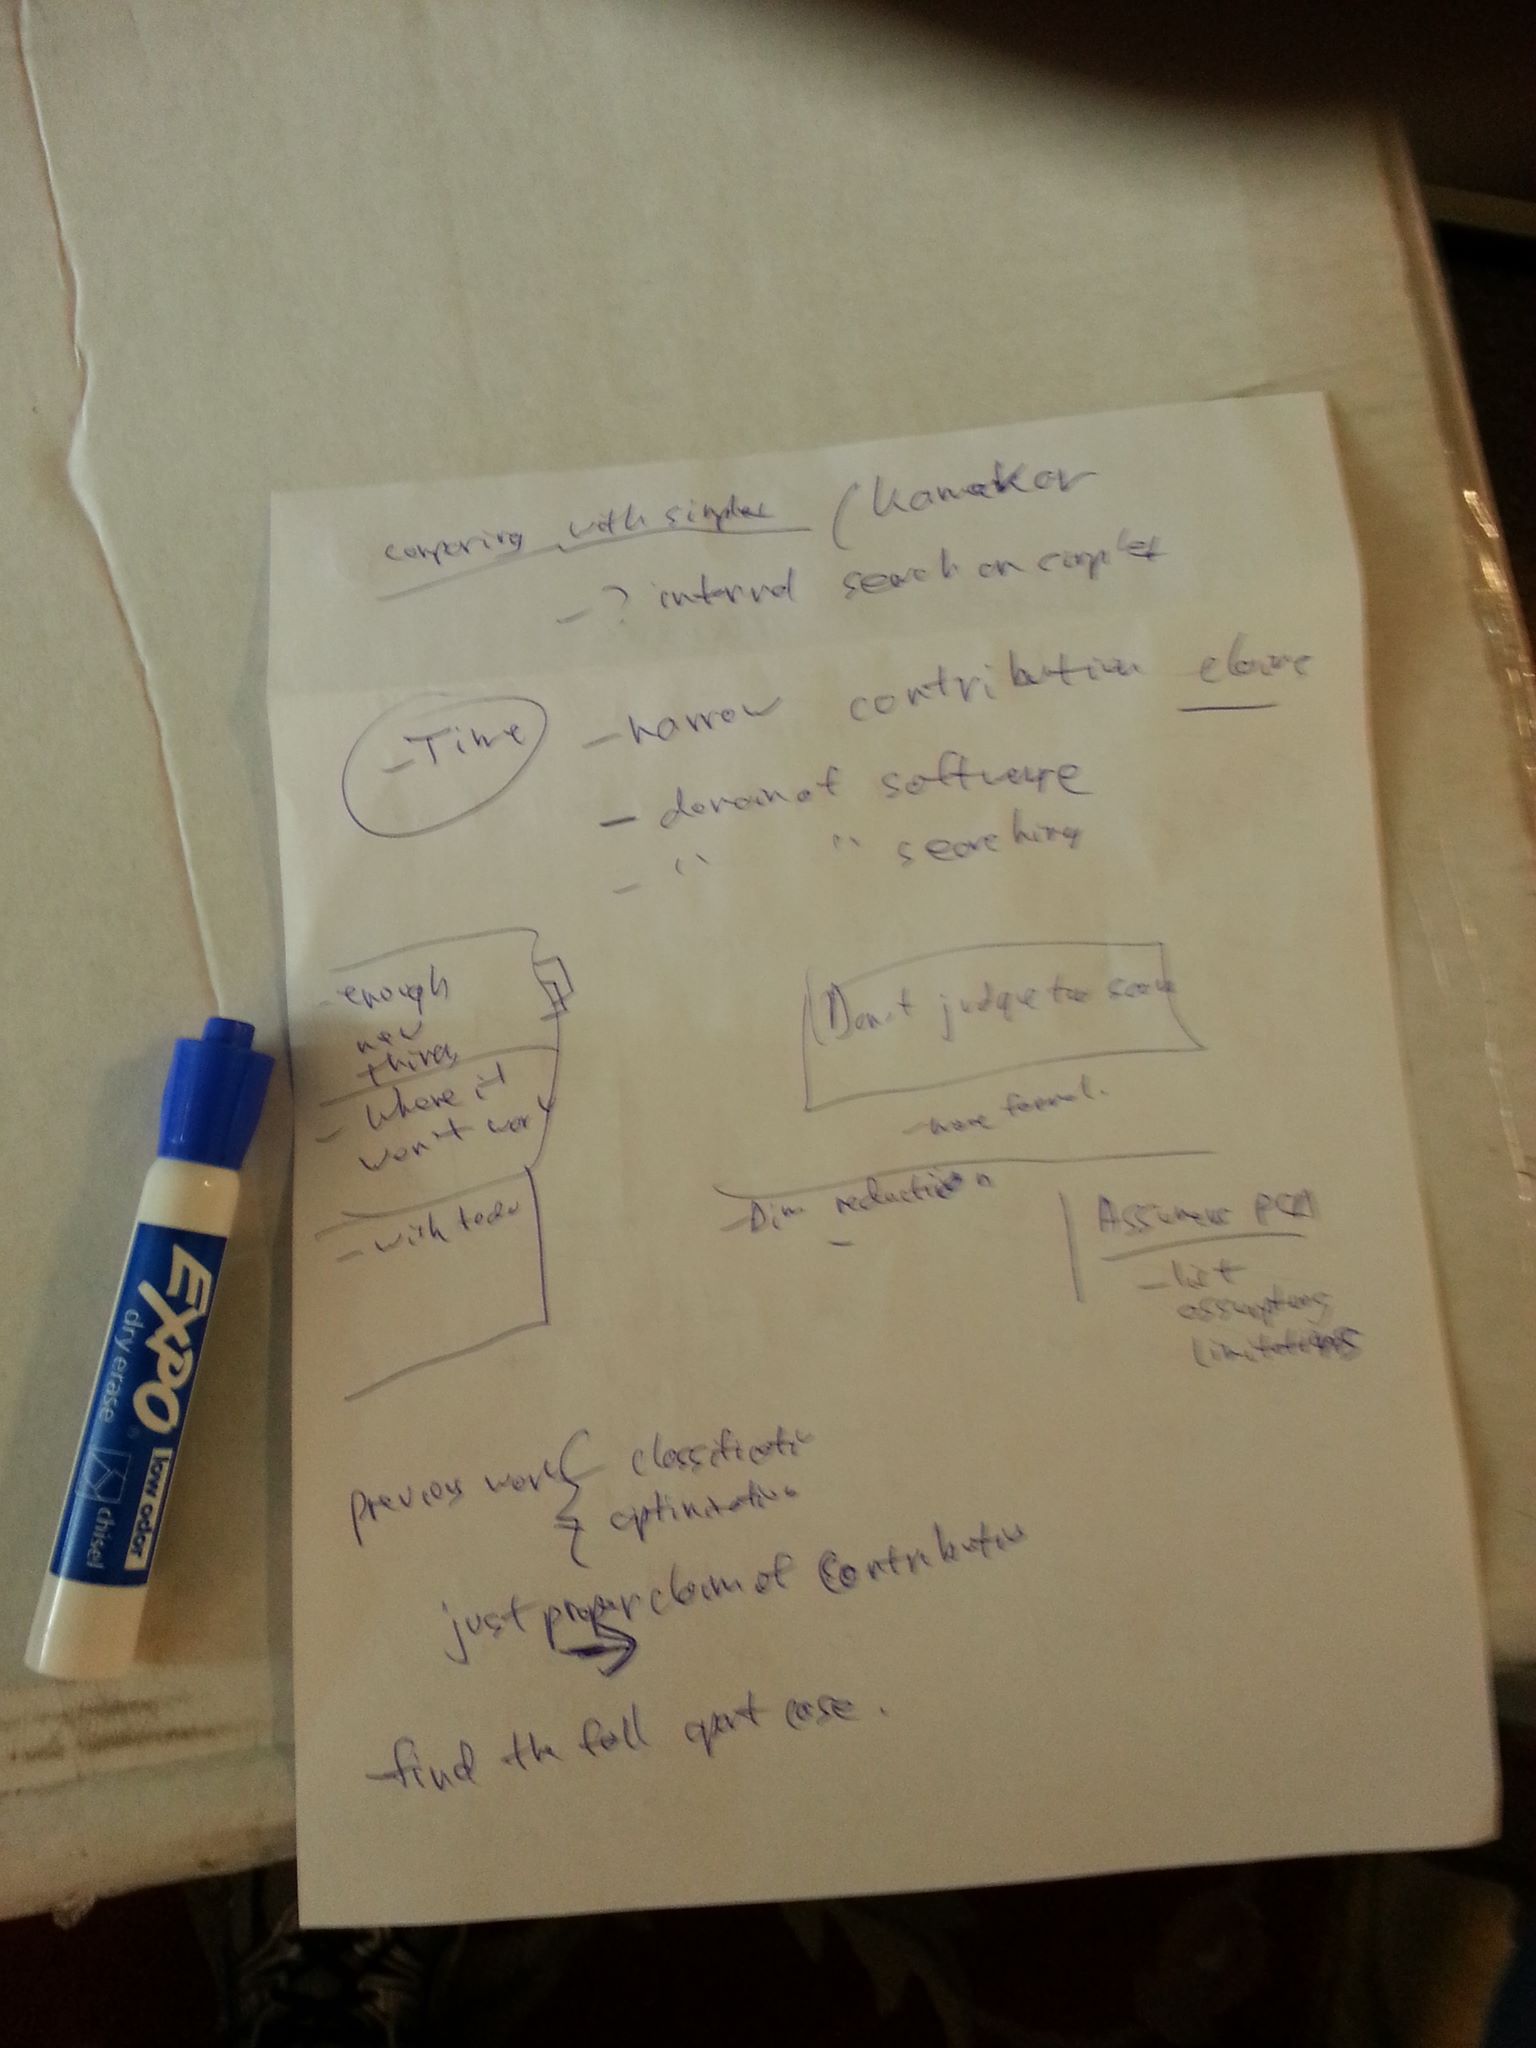 comparing with simplex (Karmakar
- ? internal search on complex
- Time
- narrow contribution claim
- domain of software
- " " searching
- enough
new
things
- where it
won't work
- with todo
Don't judge too soon
- more formal.
- Dim reduction
-
Assumes PCA
- list
assumptions
limitations
previous work { classification
optimization
just proper claim of contribution
- find the fall apart case.
EXPO
low odor
dry erase
chisel